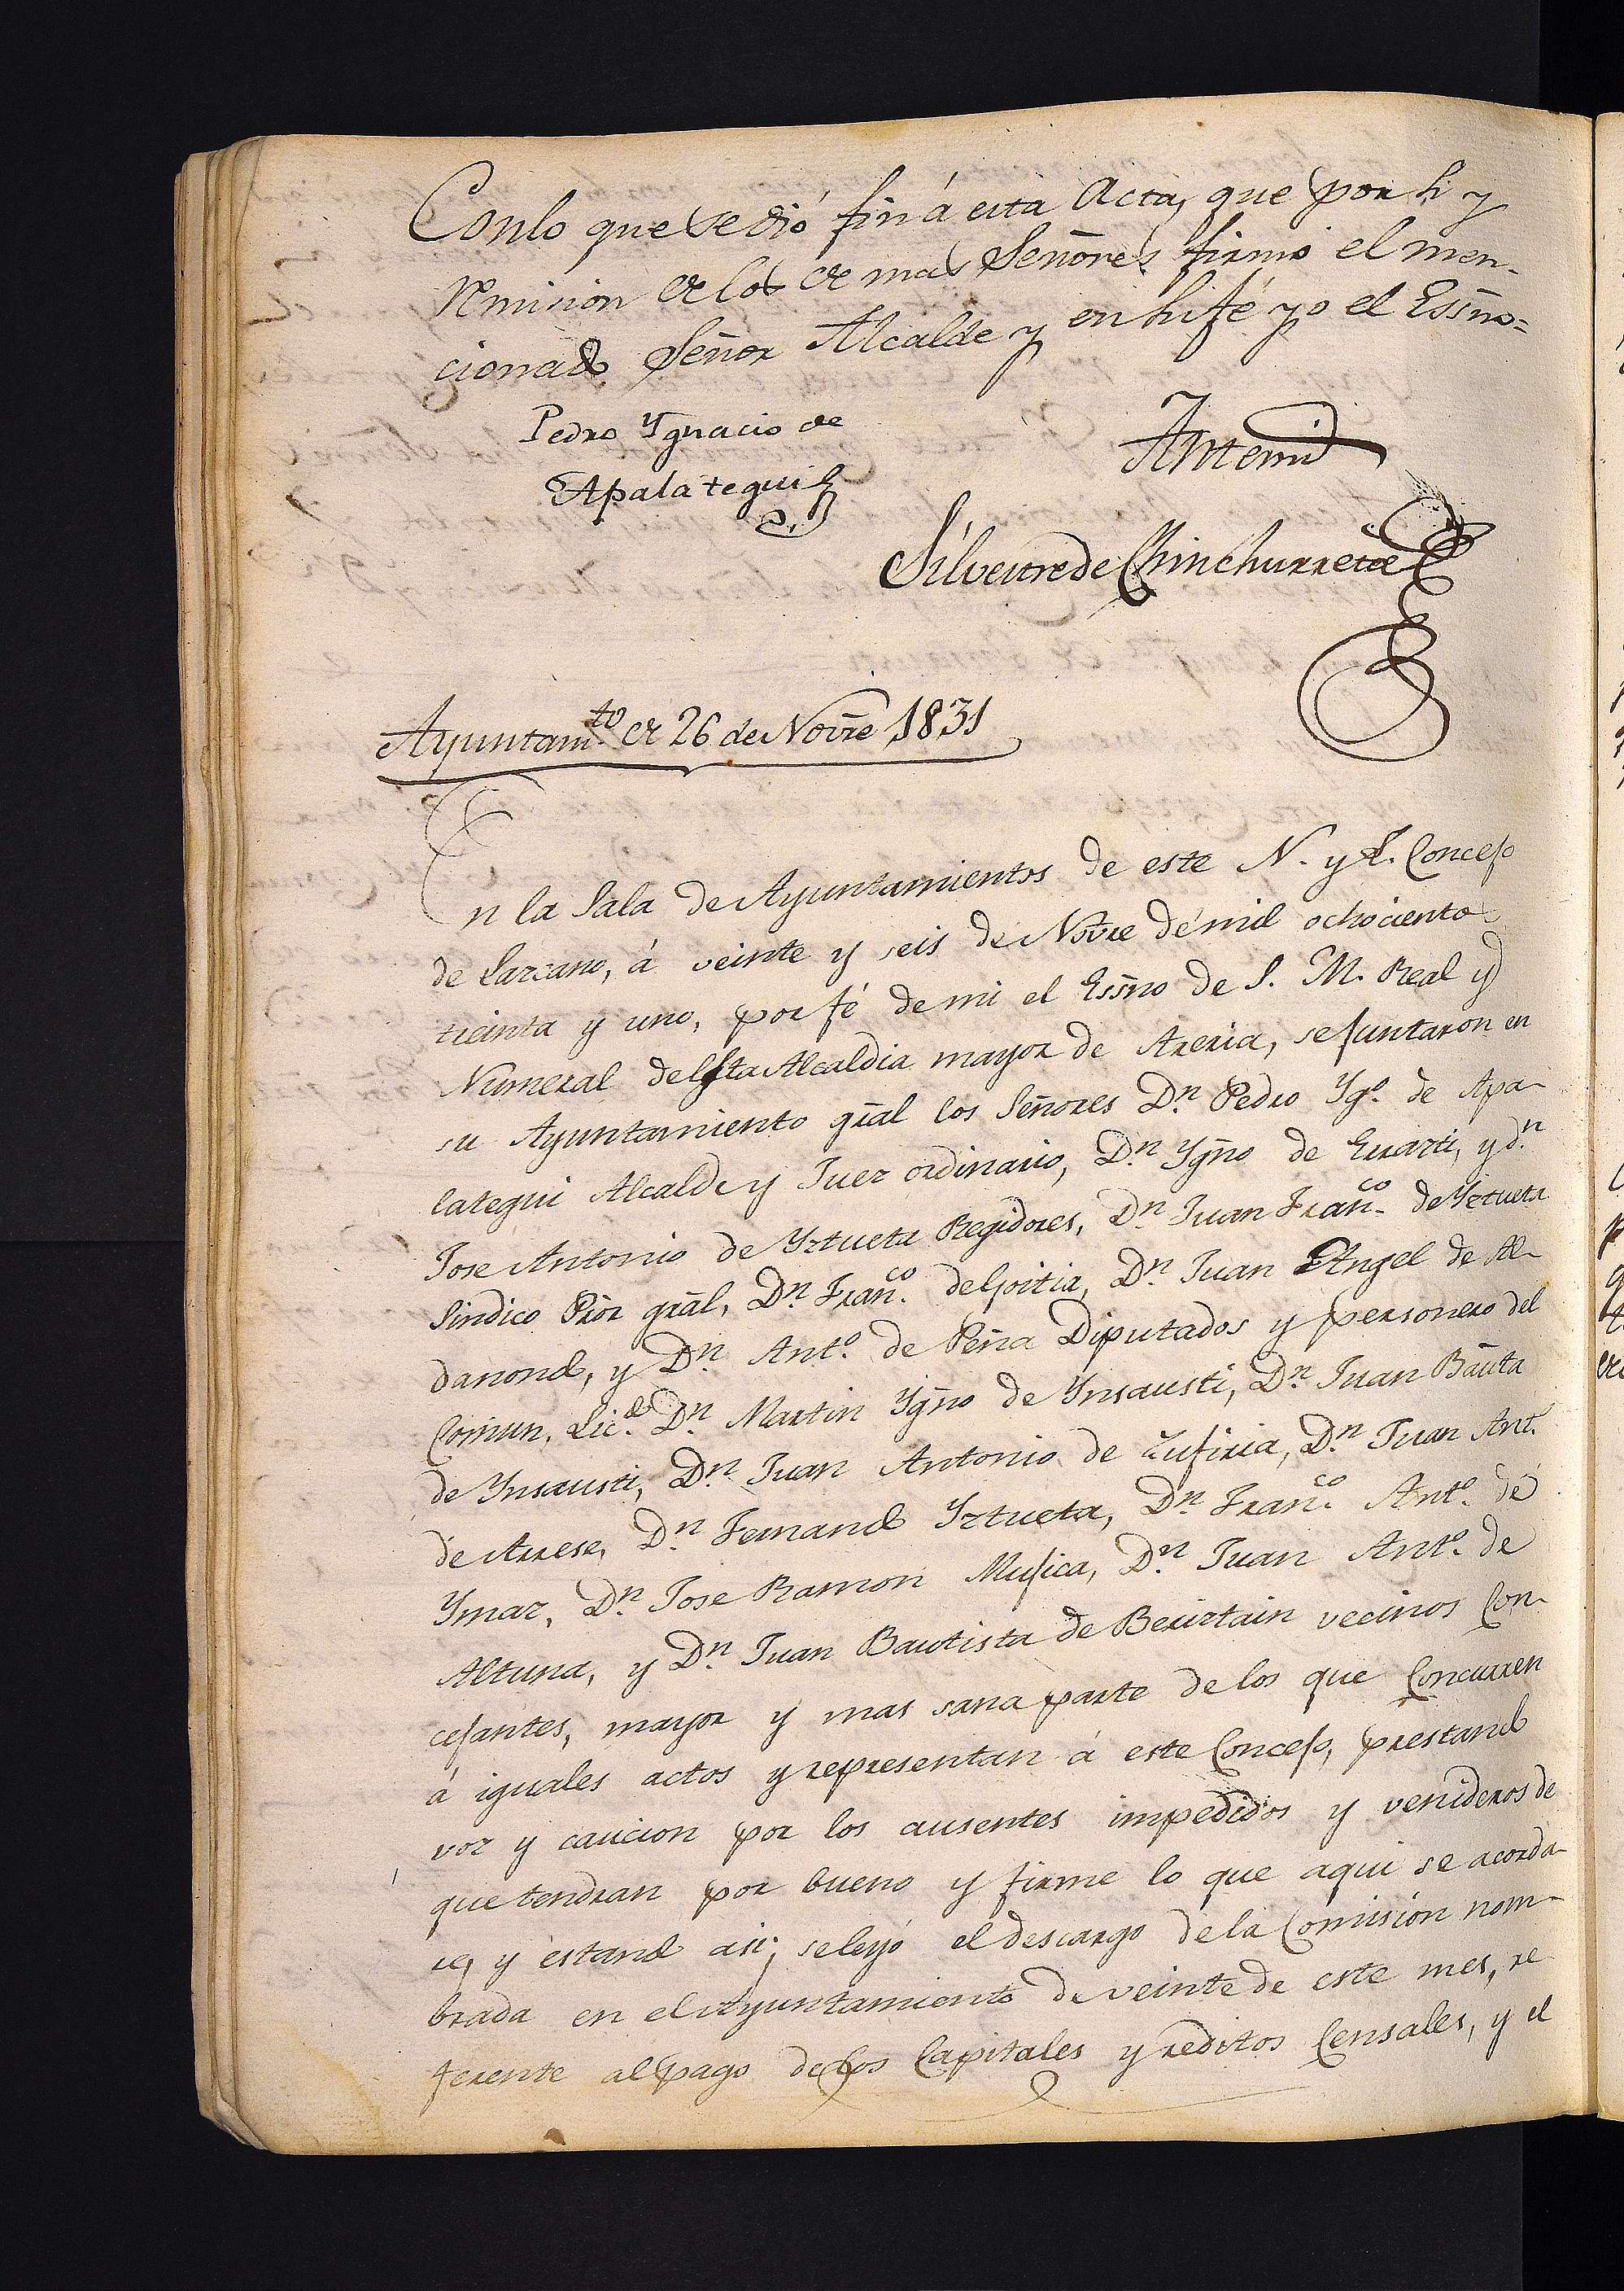 Conlo que se dió fin á esta Acta, que por si y
remision de los de mas Señores firmó el men-
cionado Señor Alcalde y en su fé yo el Essño=
Pedro Ygnacio de
Apalategui
Antemi
Silvestre de Chinchurreta
Ayuntam.to de 26 de Novre 1831
En la Sala de Ayuntamientos de este N. y L. Concejo
de Lazcano, á veinte y seis de Novre de mil ochocientos
treinta y uno, por fé de mi el Essño de S. M. Real y
Numeral de esta Alcaldia mayor de Areria, se juntaron en
su Ayuntamiento gral los Señores Dn. Pedro Ygo. de Apa-
lategui Alcalde y Juez ordinario, Dn. Ygño de Errazti, y dn
Jose Antonio de Yztueta Regidores, Dn. Juan Franco. de Yztueta
Sindico Pror gral, Dn. Franco. de Goitia, Dn. Juan Angel de Al-
danondo, y Dn. Anto. de Peña Diputados y personero del
Comun, Licdo. Dn. Martin Ygño de Ynsausti, Dn. Juan Bauta
de Ynsausti, Dn. Juan Antonio de Zufiria, Dn. Juan Anto.
de Arrese, Dn. Fernando Yztueta, Dn. Franco. Anto. de
Ymaz, Dn. Jose Ramon Mujica, Dn. Juan Anto. de
Altuna, y Dn. Juan Bautista de Beurtain vecinos Con-
cejantes, mayor y mas sana parte de los que Concurren
á iguales actos y representan á este Concejo, prestando
voz y caucion por los ausentes impedidos y venideros de
que tendran por bueno y firme lo que aqui se acorda-
re, y estando asi, se leyó el descargo de la Comision nom-
brada en el Ayuntamiento de veinte de este mes, re-
ferente al pago de los Capitales y reditos Censales, y el